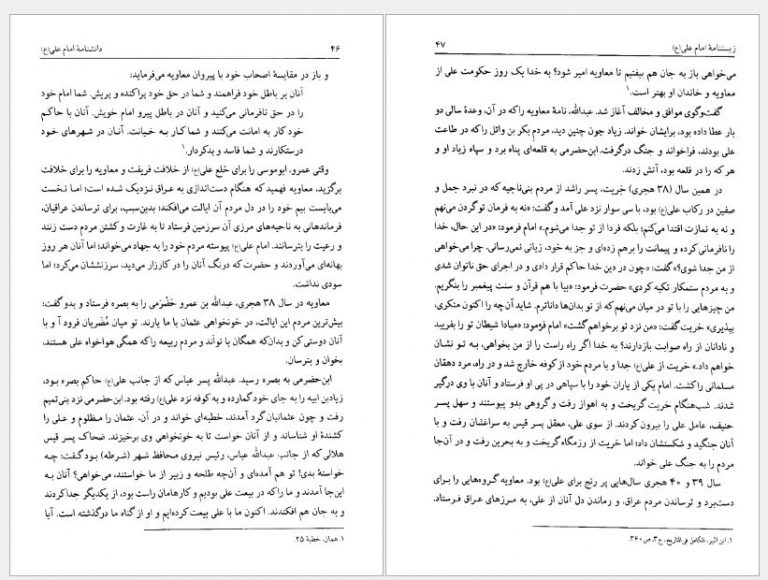 ۴۶ دانشنامهٔ امام علی(ع)
و باز در مقایسهٔ اصحاب خود با پیروان معاویه می‌فرماید:
آنان بر باطل خود فراهمند و شما در حق خود پراکنده و پریش. شما امام خود
را در حق نافرمانی می‌کنید و آنان در باطل پیرو امام خویش. آنان با حاکم
خود کار به امانت می‌کنند و شما کار به خیانت. آنان در شهرهای خود
درستکارند و شما فاسد و بدکردار.۱
وقتی عمرو، ابوموسی را برای خلع علی(ع) از خلافت فریفت و معاویه را برای خلافت
برگزید، معاویه فهمید که هنگام دست‌اندازی به عراق نزدیک شده است؛ اما نخست
می‌بایست بیم خود را در دل مردم آن ایالت می‌افکند؛ بدین‌سبب، برای ترساندن عراقیان،
فرماندهانی به ناحیه‌های مرزی آن سرزمین فرستاد تا به غارت و کشتن مردم دست زنند
و رعیت را بترسانند. امام علی(ع) پیوسته مردم خود را به جهاد می‌خواند؛ اما آنان هر روز
بهانه‌ای می‌آوردند و حضرت که درنگ آنان را در کارزار می‌دید، سرزنششان می‌کرد؛ اما
سودی نداشت.
معاویه در سال ۳۸ هجری، عبدالله بن عمرو حَضْرَمی را به بصره فرستاد و بدو گفت:
بیش‌ترین مردم این ایالت، در خونخواهی عثمان با ما یارند. تو میان مُضَریان فرود آ و با
آنان دوستی کن و بدان‌که همگان با تواند و مردم ربیعه را که همگی هواخواه علی هستند،
بخوان و بترسان.
ابن‌حضرمی به بصره رسید. عبدالله پسر عباس که از جانب علی(ع) حاکم بصره بود،
زیادبن ابیه را به جای خود گمارده و به کوفه نزد علی(ع) رفته بود. ابن‌حضرمی نزد بنی‌تمیم
رفت و چون عثمانیان گرد آمدند، خطبه‌ای خواند و در آن، عثمان را مظلوم و علی را
کشندهٔ او شناساند و از آنان خواست تا به خونخواهی وی برخیزند. ضحاک پسر قیس
هلالی که از جانب عبدالله عباس، رئیس نیروی محافظ شهر (شرطه) بود، گفت: چه
خواستهٔ بدی! تو هم آمده‌ای و آن‌چه طلحه و زبیر از ما خواستند، می‌خواهی؟ آنان به
این‌جا آمدند و ما را که در بیعت علی بودیم و کارهامان راست بود، از یکدیگر جدا کردند
و به جان هم افکندند. اکنون ما با علی بیعت کرده‌ایم و او از گناه ما درگذشته است. آیا
۱. همان، خطبهٔ ۲۵.
زیستنامهٔ امام علی(ع) ۴۷
می‌خواهی باز به جان هم بیفتیم تا معاویه امیر شود؟ به خدا یک روز حکومت علی از
معاویه و خاندان او بهتر است.۱
گفت‌وگوی موافق و مخالف آغاز شد. عبدالله، نامهٔ معاویه را که در آن، وعدهٔ سالی دو
بار عطا داده بود، برایشان خواند. زیاد چون چنین دید، مردم بکر بن وائل را که در طاعت
علی بودند، فراخواند و جنگ درگرفت. ابن‌حضرمی به قلعه‌ای پناه برد و سپاه زیاد او و
هر که را در قلعه بود، آتش زدند.
در همین سال (۳۸ هجری) خِریت، پسر راشد از مردم بنی‌ناجیه که در نبرد جمل و
صفین در رکاب علی(ع) بود، با سی سوار نزد علی آمد و گفت: «نه به فرمان تو گردن می‌نهم
و نه به نمازت اقتدا می‌کنم؛ بلکه فردا از تو جدا می‌شوم.» امام فرمود: «در این حال، خدا
را نافرمانی کرده و پیمانت را برهم زده‌ای و جز به خود، زیانی نمی‌رسانی. چرا می‌خواهی
از من جدا شوی؟» گفت: «چون در دین خدا حاکم قرار دادی و در اجرای حق ناتوان شدی
و به مردم ستمکار تکیه کردی.» حضرت فرمود: «بیا با هم قرآن و سنت پیغمبر را بنگریم.
من چیزهایی را با تو در میان می‌نهم که از تو بدان‌ها داناترم. شاید آن‌چه را اکنون منکری،
بپذیری.» خریت گفت: «من نزد تو برخواهم گشت.» امام فرمود: «مبادا شیطان تو را بفریبد
و نادانان از راه صوابت بازدارند! به خدا اگر راه راست را از من بخواهی، به تو نشان
خواهم داد.» خریت از علی(ع) جدا و با مردم خود از کوفه خارج شد و در راه، مرد دهقان
مسلمانی را کشت. امام یکی از یاران خود را با سپاهی در پی او فرستاد و آنان با وی درگیر
شدند. شب‌هنگام خریت گریخت و به اهواز رفت و گروهی بدو پیوستند و سهل پسر
حنیف، عامل علی را بیرون کردند. از سوی علی، معقل پسر قیس به سراغشان رفت و با
آنان جنگید و شکستشان داد؛ اما خریت از رزمگاه گریخت و به بحرین رفت و در آن‌جا
مردم را به جنگ علی خواند.
سال ۳۹ و ۴۰ هجری سال‌هایی پر رنج برای علی(ع) بود. معاویه گروه‌هایی را برای
دست‌برد و ترساندن مردم عراق، و رماندن دل آنان از علی، به مرزهای عراق فرستاد.
۱. ابن اثیر، الکامل فی التاریخ، ج۳، ص۳۶۰.